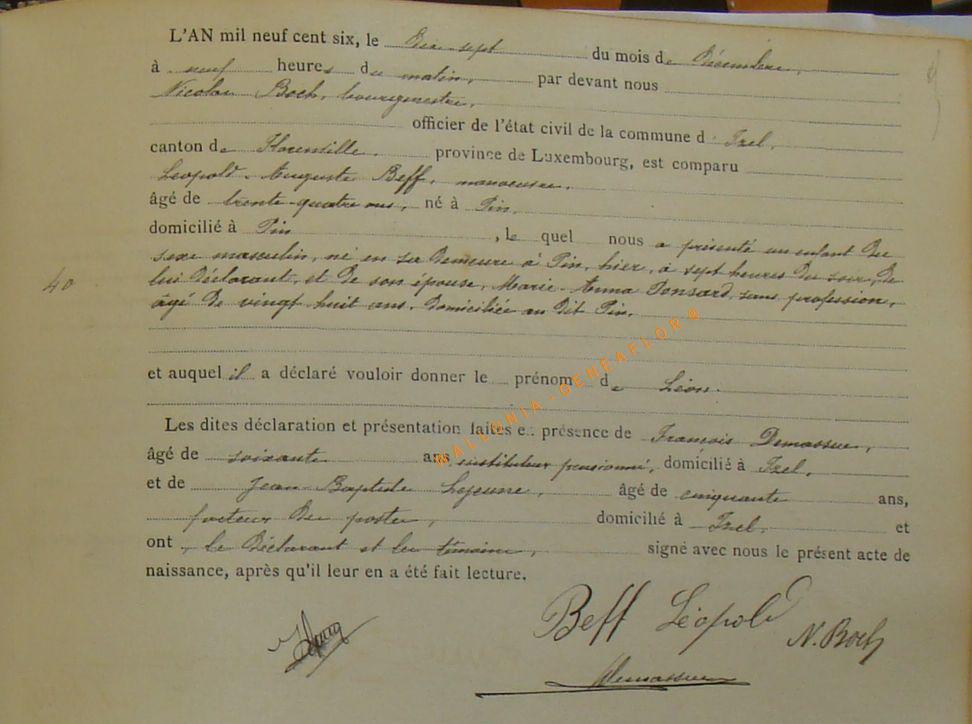 L'AN mil neuf cent six, le dix-sept du mois de Décembre,
à neuf heures du matin, par devant nous
Nicolas Boch, bourgmestre,
officier de l'état civil de la commune d'Izel,
canton de Florenville province de Luxembourg, est comparu
Léopold-Auguste Beff, manoeuvre,
âgé de trente-quatre ans, né à Pin,
domicilié à Pin, le quel nous a présenté un enfant du
sexe masculin, né en sa demeure à Pin, hier, à sept heures du soir, de
40 lui déclarant, et de son épouse, Marie-Anna Ponsard, sans profession,
âgé de vingt huit ans, domiciliée au dit Pin.
et auquel il a déclaré vouloir donner le prénom de Léon.
Les dites déclaration et présentation faites en présence de François Demasure,
âgé de soixante ans instituteur pensionné, domicilié à Izel,
et de Jean-Baptiste Lejeune, âgé de cinquante ans,
facteur des postes, domicilié à Izel, et
ont, le déclarant et les témoins, signé avec nous le présent acte de
naissance, après qu'il leur en a été fait lecture.
Beff Léopold
N. Boch
WALLONIA-GENEAFLOR®